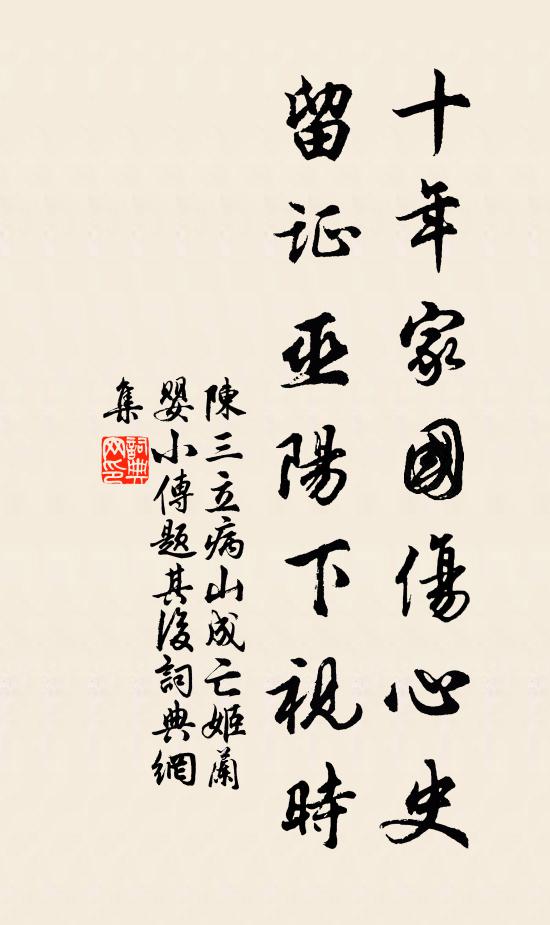 十年家國傷心史
留证巫陽下視時
陳三立病山成亡姬蘭
嬰小傳題其後詞典網
集
詞典網